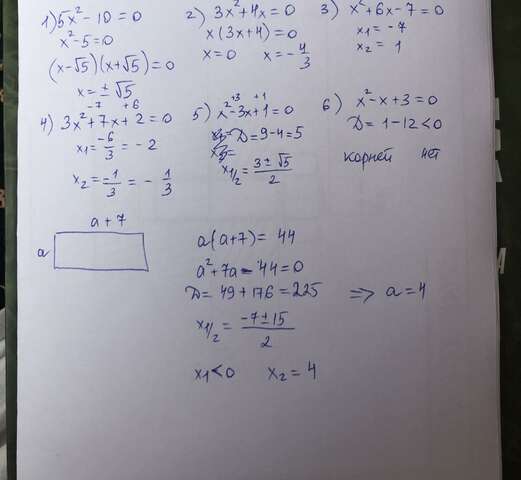 1) 5x² - 10 = 0
x² - 5 = 0
(x - √5)(x + √5) = 0
x = ± √5
2) 3x² + 4x = 0
x(3x + 4) = 0
x = 0 x = - 4/3
3) x² + 6x - 7 = 0
x₁ = -7
x₂ = 1
-7 +6
4) 3x² + 7x + 2 = 0
x₁ = -6/3 = - 2
x₂ = -1/3 = - 1/3
+3 +1
5) x² - 3x + 1 = 0
D = 9 - 4 = 5
x1/2 = (3 ± √5)/2
6) x² - x + 3 = 0
D = 1 - 12 < 0
корней нет
a + 7
a
a(a+7) = 44
a² + 7a - 44 = 0
D = 49 + 176 = 225 => a = 4
x1/2 = (-7 ± 15)/2
x₁ < 0 x₂ = 4